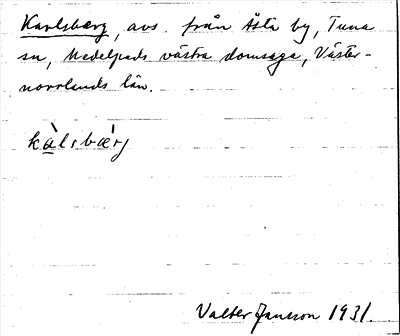 Karlsberg, avs. från Åsta by, Tuna
sn, Medelpads västra domsaga, Väster-
norrlands län.
kàlsbæ̀rj
Valter Jansson 1931.